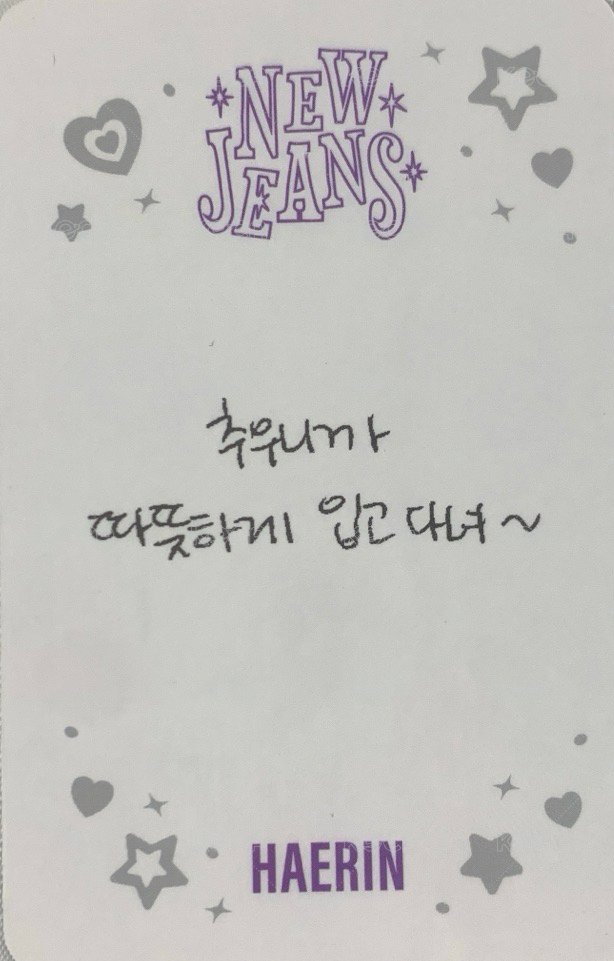 NEW
JEANS
추우니까
따뜻하게 입고 다녀~
HAERIN